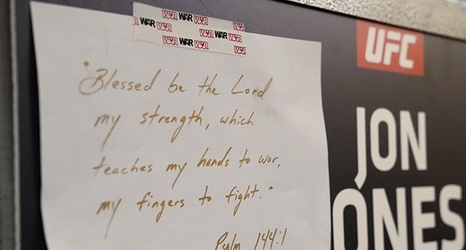 WAR WAR WAR WAR
WAR WAR WAR WAR
"Blessed be the Lord
my strength, which
teaches my hands to war,
my fingers to fight."
Psalm 144:1
UFC
JON
JONES